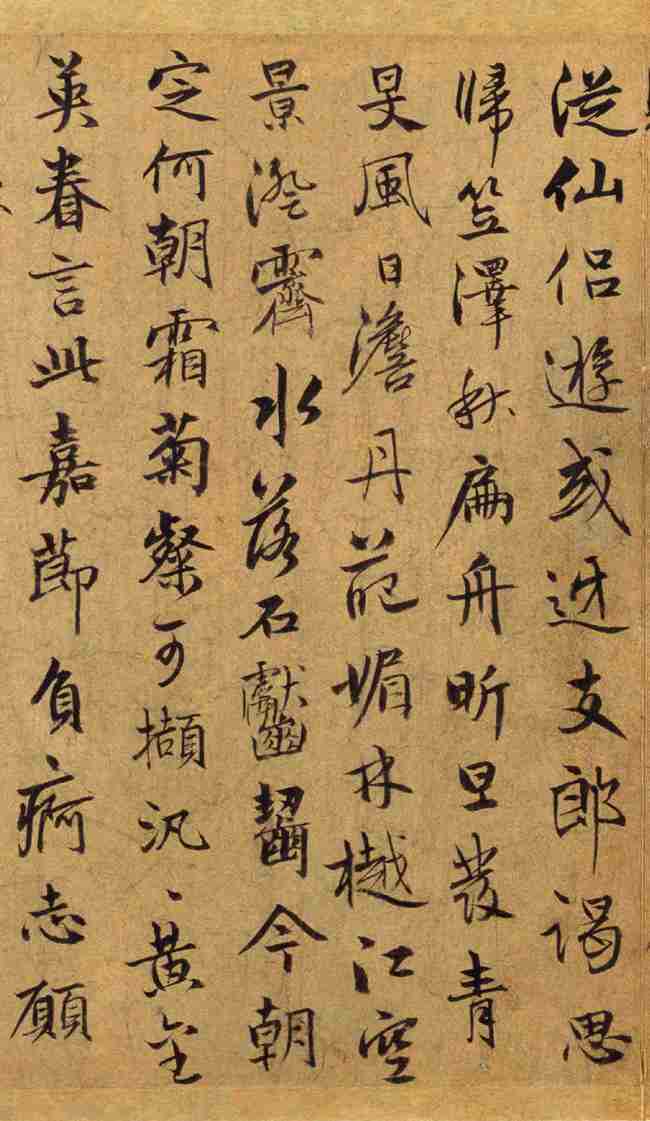 從仙侶遊或迓支郎謁思
歸笠澤秋扁舟昕旦發青
旻風日澹丹葩媚林樾江空
景澄霽水落石巘齧今朝
定何朝霜菊粲可擷汎黃金
英眷言此嘉節負痾志願